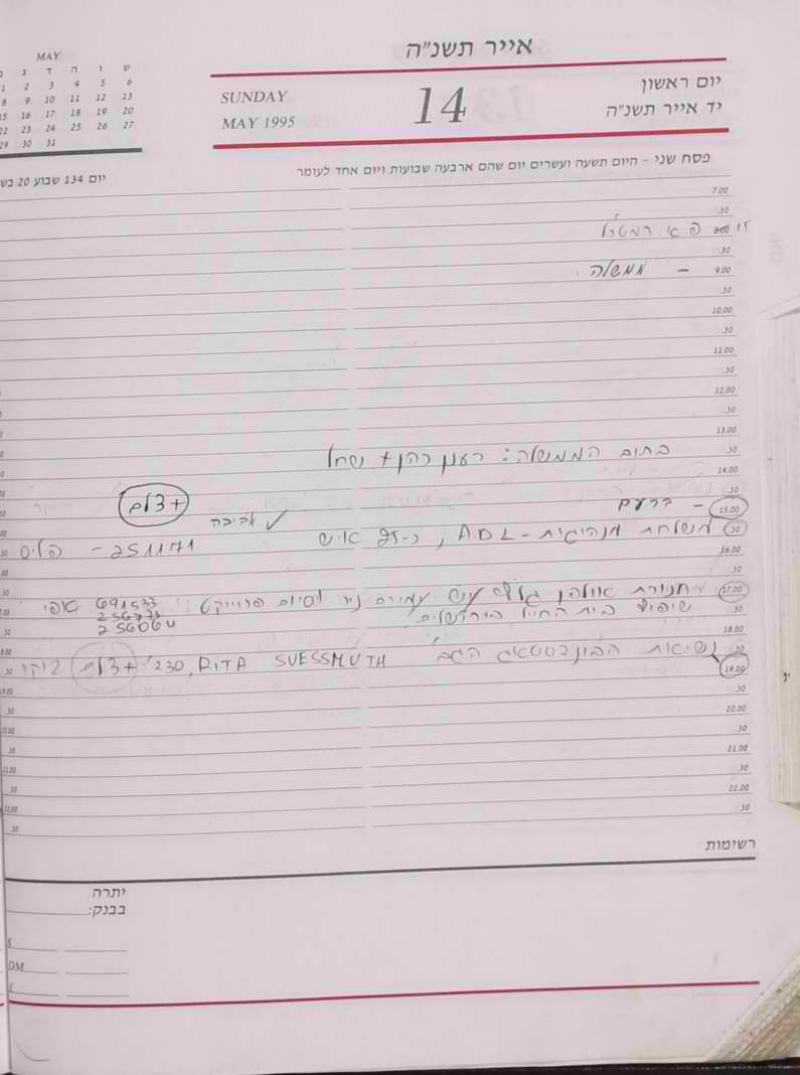 אייר תשנ"ה
MAY
ש ו ה ד ג
6 5 4 3 2 1
13 12 11 10 9 8
20 19 18 17 16 15
27 26 25 24 23 22
31 30 29
SUNDAY
MAY 1995
14
יום ראשון
יד אייר תשנ"ה
פסח שני - היום תשעה ועשרים יום שהם ארבעה שבועות ויום אחד לעומר
יום 134 שבוע 20
7.00
.30
פ א רמטכ"ל
.30
9.00 - ממשלה
.30
10.00
.30
11.00
.30
12.00
.30
13.00
.30 בתום הממשלה: רענן כהן + שחל
14.00
.30
15.00 - ברעם + צלם
אביבה ✓
.30 משלחת מנהיגות - ADL, כ-25 איש 251171 -
16.00
.30
17.00 חנוכת אולם ע"ש עמירם ניר וסיום פרוייקט 691533
256773
.30 שיפוץ בית החייל בירושלים 256064
18.00
.30 נשיאות הבונדסטאג הגב' RITA SUESSMUTH, 230' + צלם בוקי
19.00
.30
20.00
.30
21.00
.30
22.00
.30
רשימות
יתרה
בבנק:
$
DM
£